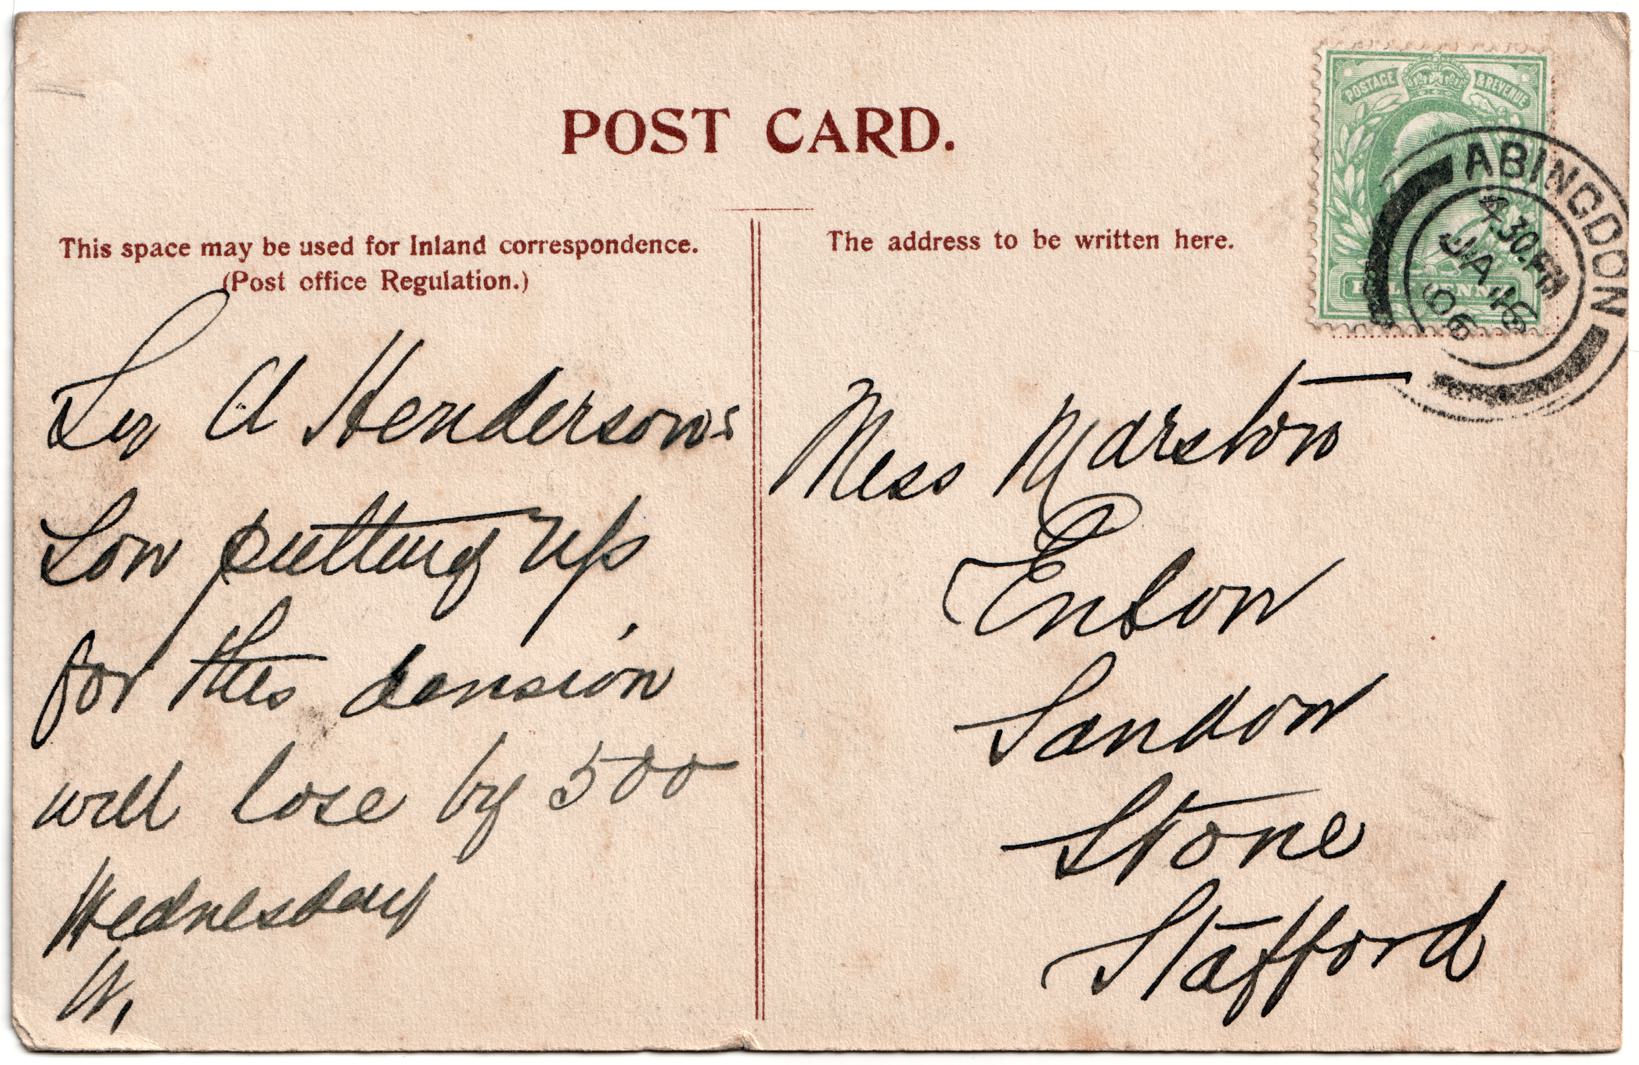 POST CARD.
This space may be used for Inland correspondence.
(Post office Regulation.)
Sir A Hendersons
Son putting up
for this dension
will lose by 500
Wednesday
W.
The address to be written here.
POSTAGE & REVENUE
HALFPENNY
ABINGDON
4.30 PM
JA 16
06
Miss Marston
Enson
Sandon
Stone
Stafford